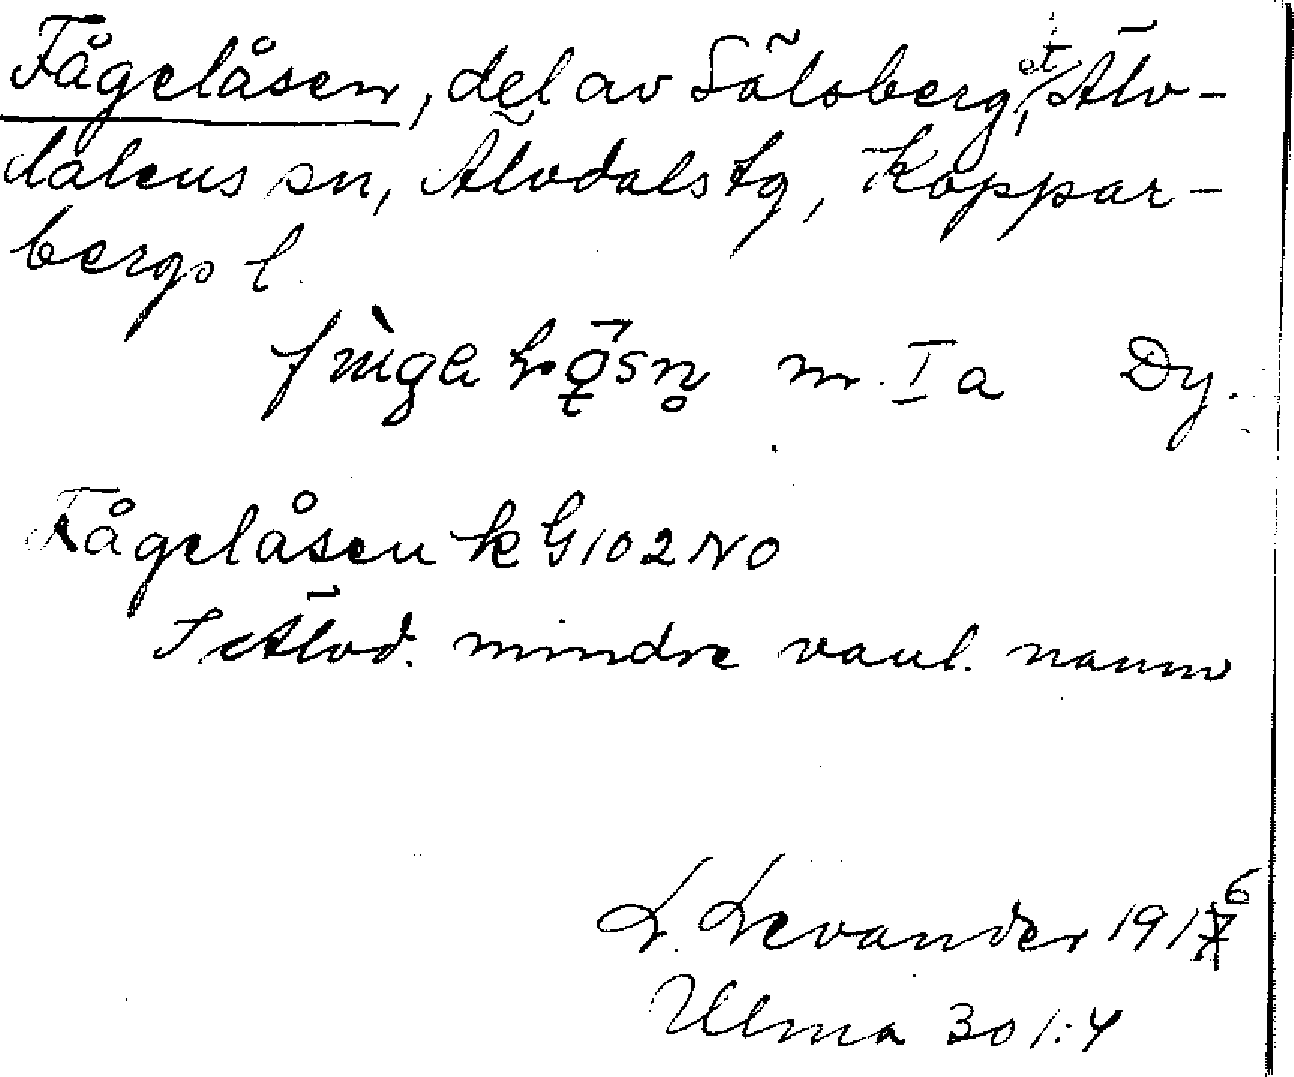 Fågelåsen, del av Sälsberg, et, Älv-
dalens sn, Älvdals tg, Koppar-
bergs l.
m. I a Dy.
Fågelåsen k G 102 NO
I Älvd. mindre vanl. namn
L. Levander 1916
Ulma 301:4